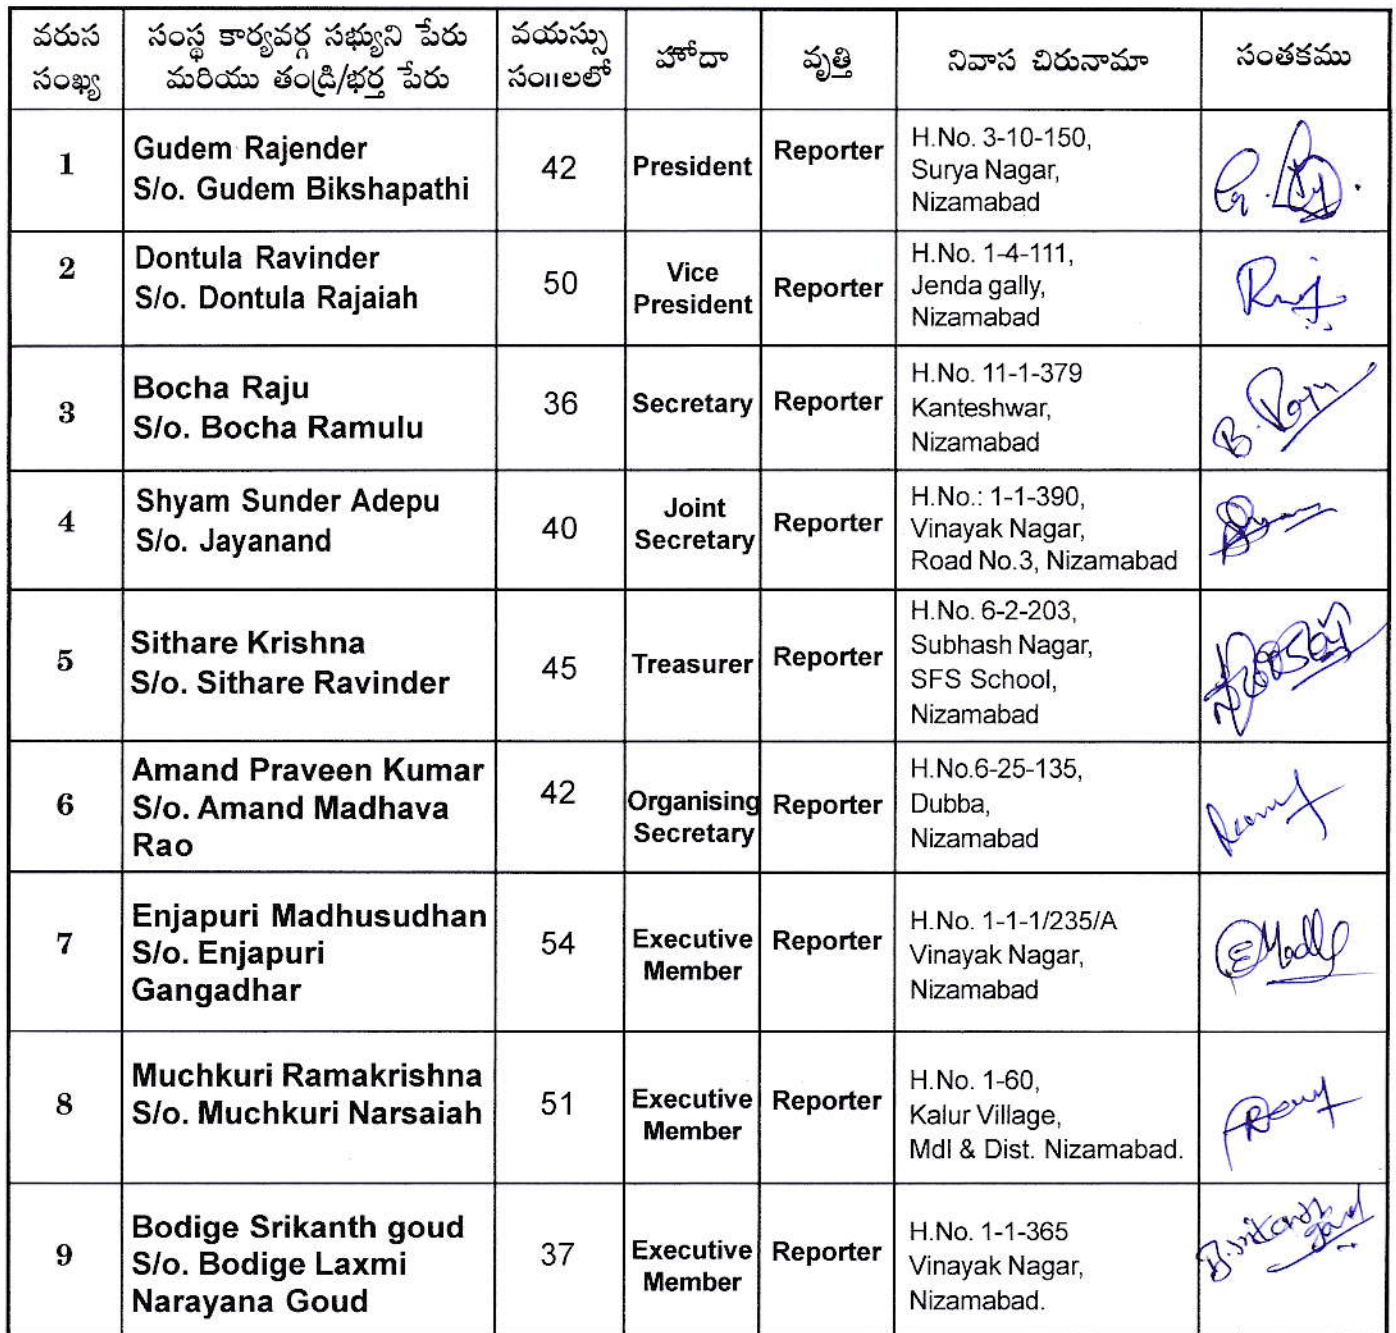 వరుస సంఖ్య
సంస్థ కార్యవర్గ సభ్యుని పేరు
మరియు తండ్రి/భర్త పేరు
వయస్సు
సం॥లలో
హోదా
వృత్తి
నివాస చిరునామా
సంతకము
1
Gudem Rajender
S/o. Gudem Bikshapathi
42
President
Reporter
H.No. 3-10-150,
Surya Nagar,
Nizamabad
2
Dontula Ravinder
S/o. Dontula Rajaiah
50
Vice
President
Reporter
H.No. 1-4-111,
Jenda gally,
Nizamabad
3
Bocha Raju
S/o. Bocha Ramulu
36
Secretary
Reporter
H.No. 11-1-379
Kanteshwar,
Nizamabad
B. Raju
4
Shyam Sunder Adepu
S/o. Jayanand
40
Joint
Secretary
Reporter
H.No.: 1-1-390,
Vinayak Nagar,
Road No.3, Nizamabad
5
Sithare Krishna
S/o. Sithare Ravinder
45
Treasurer
Reporter
H.No. 6-2-203,
Subhash Nagar,
SFS School,
Nizamabad
6
Amand Praveen Kumar
S/o. Amand Madhava
Rao
42
Organising
Secretary
Reporter
H.No.6-25-135,
Dubba,
Nizamabad
7
Enjapuri Madhusudhan
S/o. Enjapuri
Gangadhar
54
Executive
Member
Reporter
H.No. 1-1-1/235/A
Vinayak Nagar,
Nizamabad
8
Muchkuri Ramakrishna
S/o. Muchkuri Narsaiah
51
Executive
Member
Reporter
H.No. 1-60,
Kalur Village,
Mdl & Dist. Nizamabad.
9
Bodige Srikanth goud
S/o. Bodige Laxmi
Narayana Goud
37
Executive
Member
Reporter
H.No. 1-1-365
Vinayak Nagar,
Nizamabad.
B. Srikanth
goud